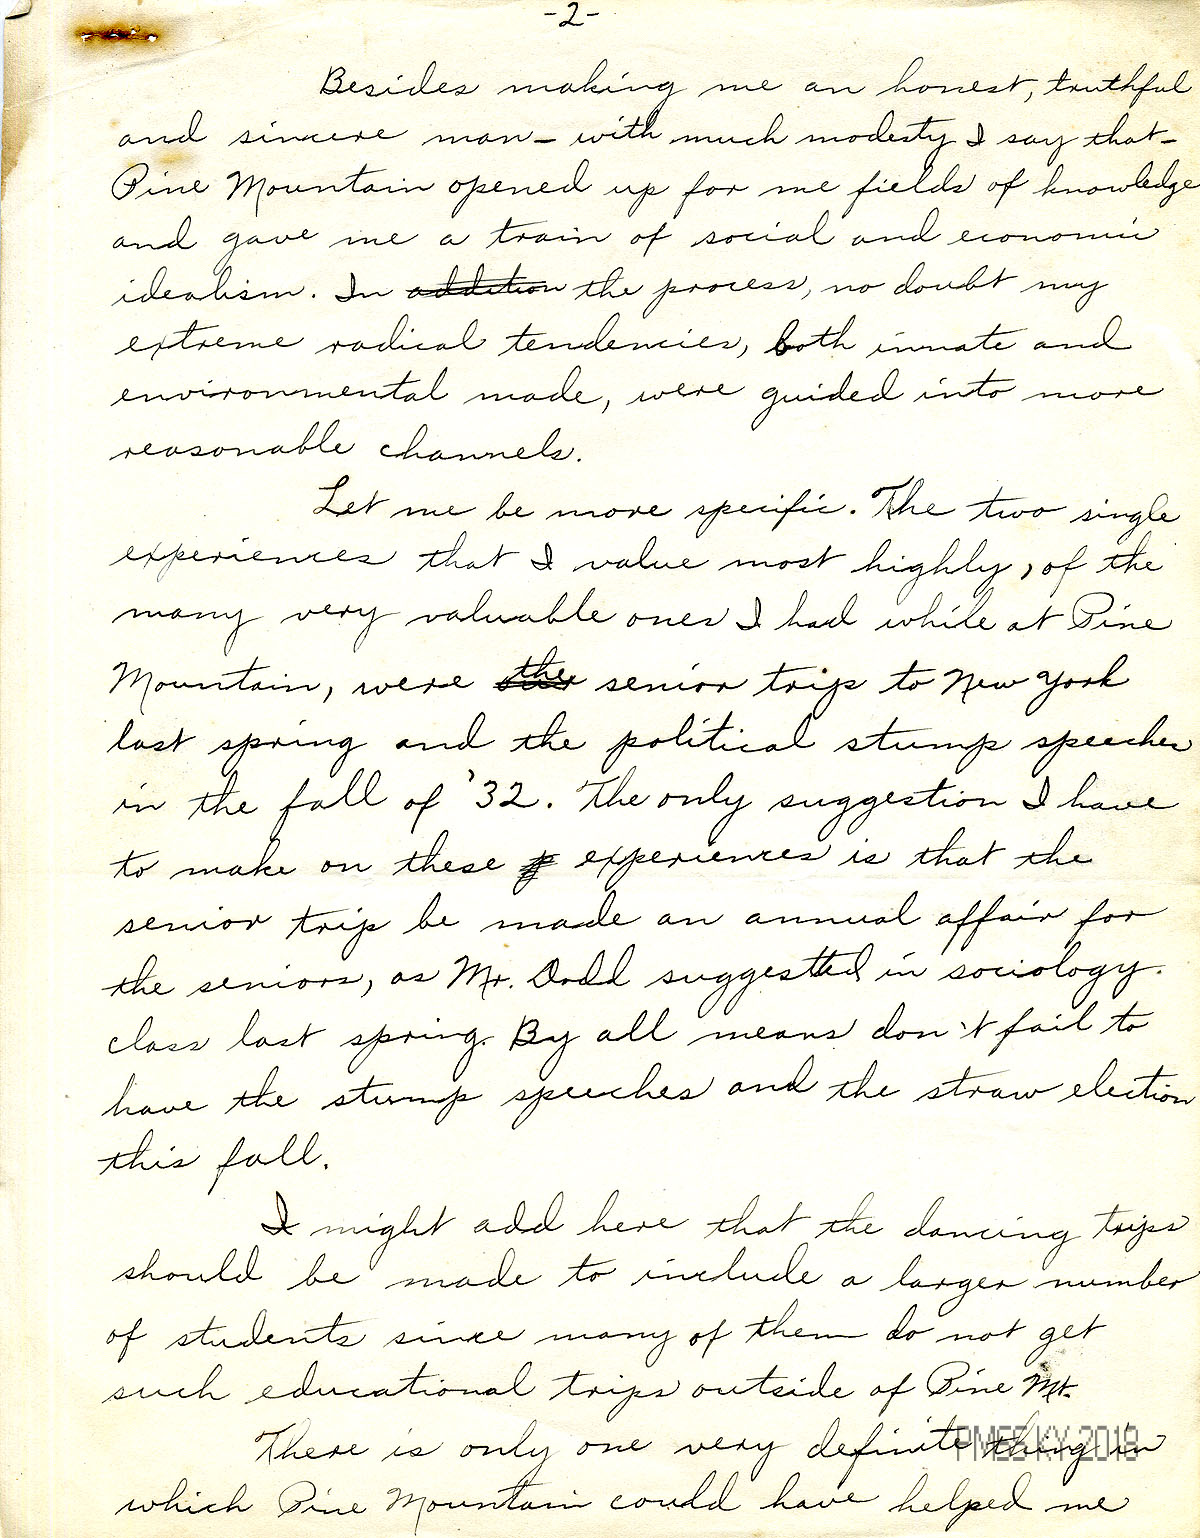 -2-
Besides making me an honest, truthful
and sincere man – with much modesty I say that –
Pine Mountain opened up for me fields of knowledge
and gave me a train of social and economic
idealism. In addition the process, no doubt my
extreme radical tendencies, both innate and
environmental made, were guided into more
reasonable channels.
Let me be more specific. The two single
experiences that I value most highly, of the
many very valuable ones I had while at Pine
Mountain, were the senior trip to New York
last spring and the political stump speeches
in the fall of '32. The only suggestion I have
to make on these experiences is that the
senior trip be made an annual affair for
the seniors, as Mr. Dodd suggested in sociology
class last spring. By all means don't fail to
have the stump speeches and the straw election
this fall.
I might add here that the dancing trips
should be made to include a larger number
of students since many of them do not get
such educational trips outside of Pine Mt.
There is only one very definite thing in
PMSS KY 2018
which Pine Mountain could have helped me